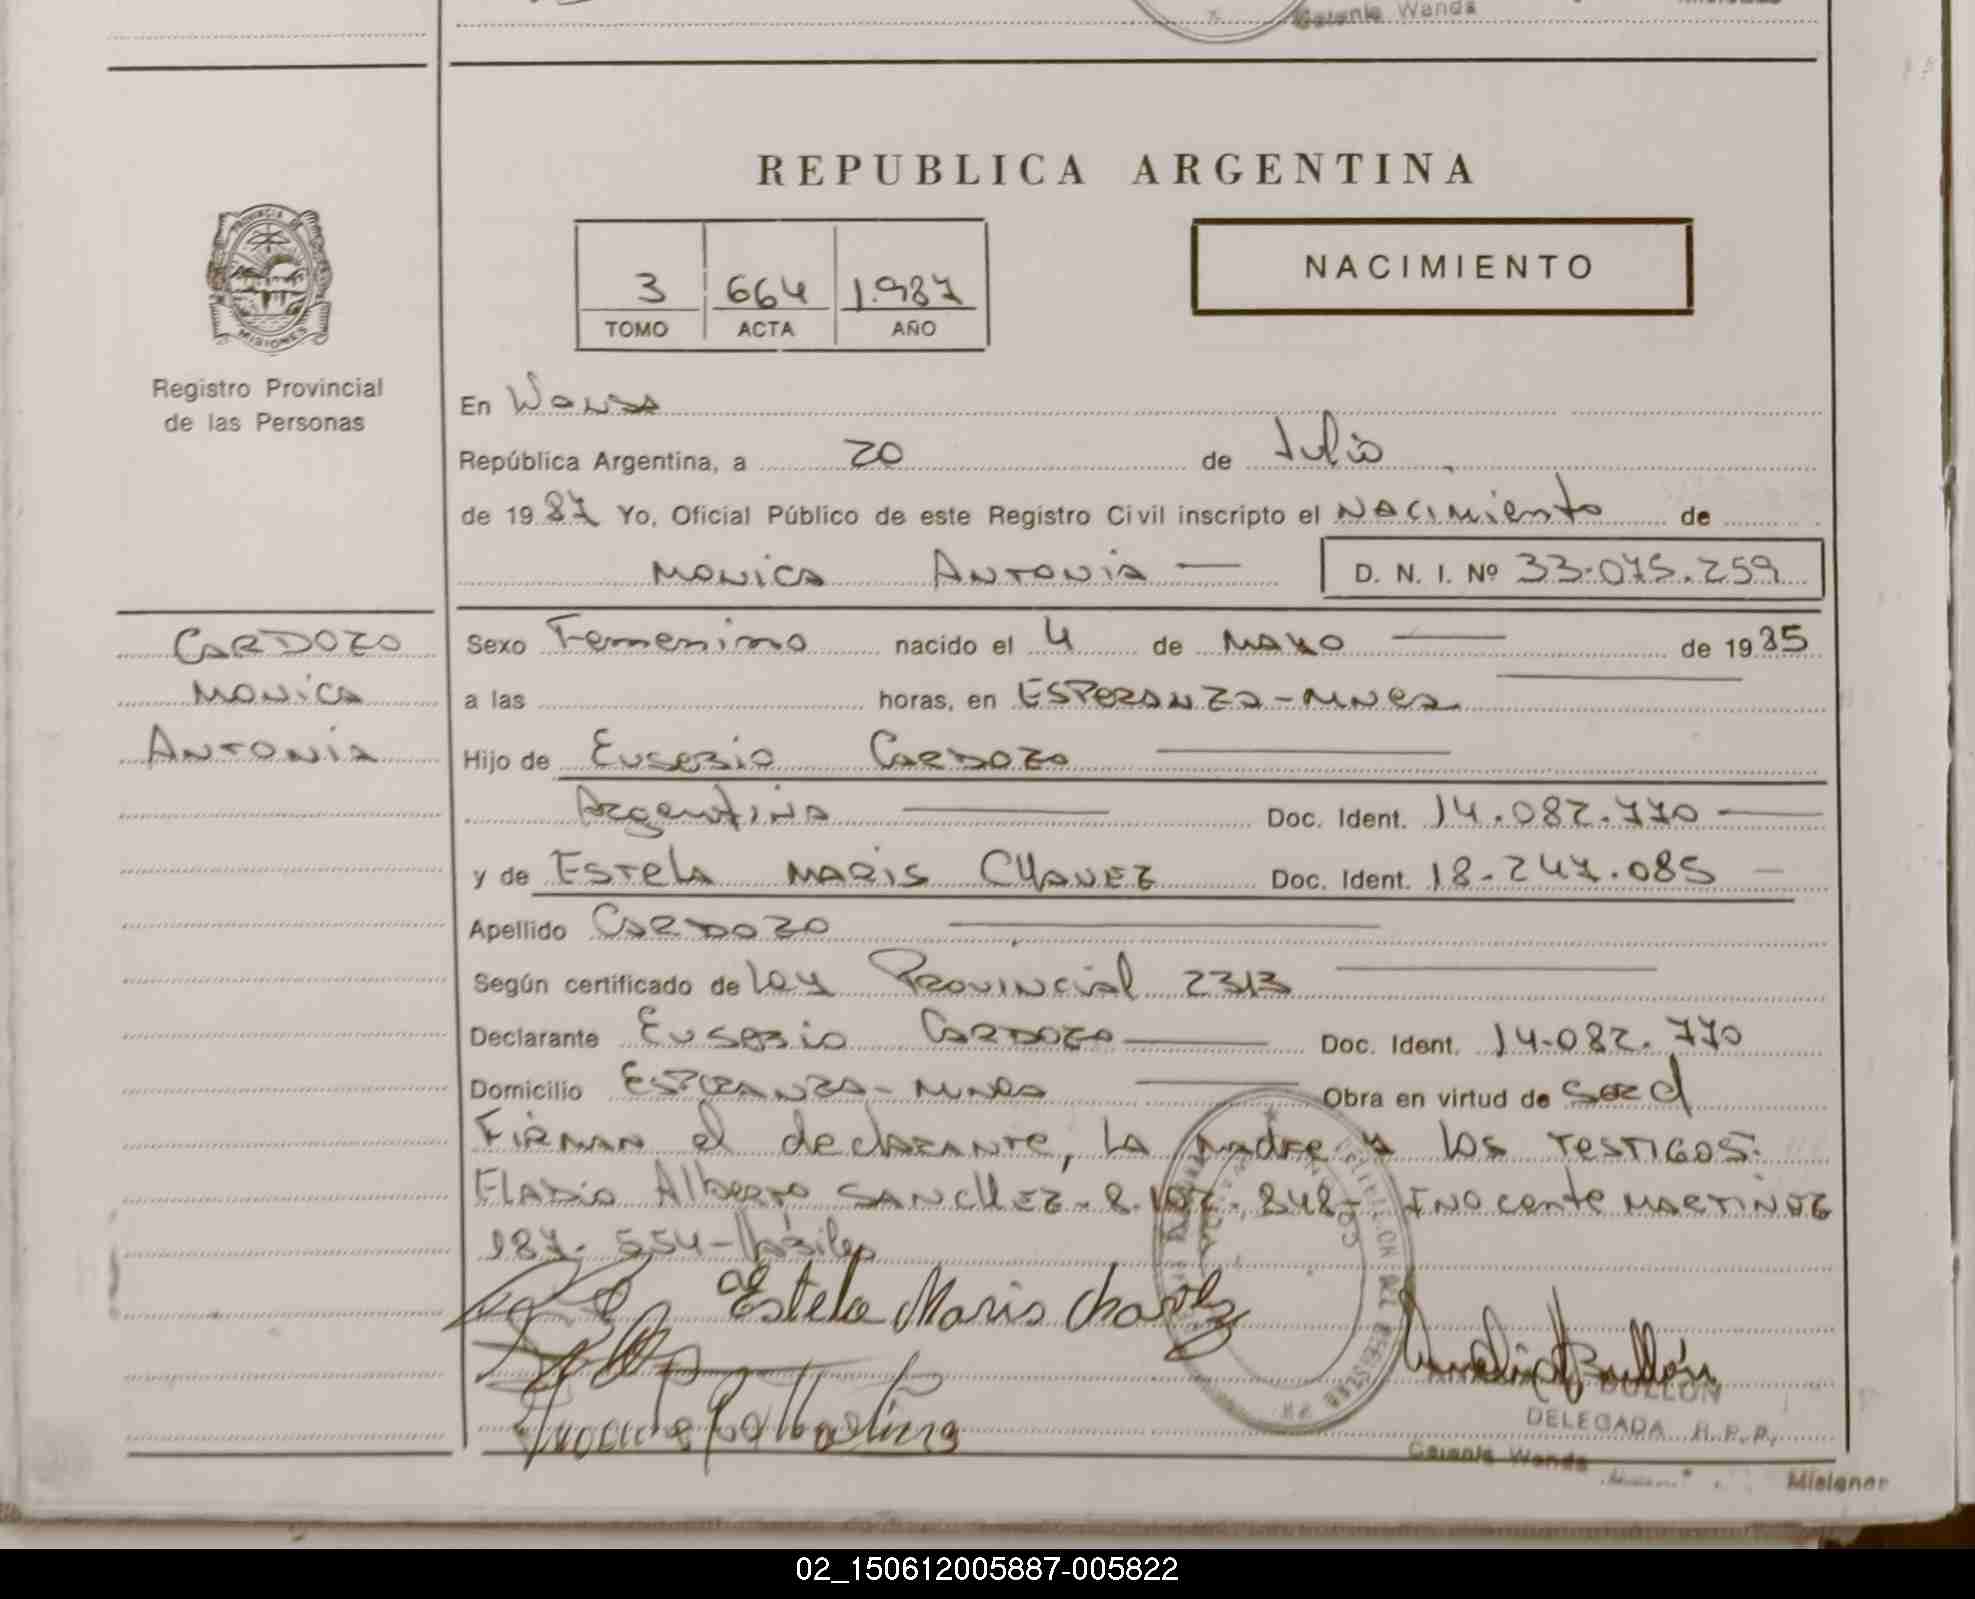 Wanda
REPUBLICA ARGENTINA
PROVINCIA DE MISIONES
3 664 1.987
TOMO ACTA AÑO
NACIMIENTO
Registro Provincial
de las Personas
En Wanda
República Argentina, a 20 de Julio
de 1987 Yo, Oficial Público de este Registro Civil inscripto el Nacimiento de
MONICA ANTONIA — D. N. I. Nº 33.075.259
CARDOZO
MONICA
ANTONIA
Sexo Femenino nacido el 4 de MAYO — de 1985
a las horas, en ESPERANZA-MNES
Hijo de EUSEBIO CARDOZO
Argentina Doc. Ident. 14.082.770
y de ESTELA MARIS CHAVEZ Doc. Ident. 18.247.085
Apellido CARDOZO
Según certificado de Ley PROVINCIAL 2313
Declarante EUSEBIO CARDOZO Doc. Ident. 14.082.770
Domicilio ESPERANZA-MNES Obra en virtud de
FIRMAN el declarante, la madre y los TESTIGOS:
Eladio Alberto SANCHEZ - 8. 848- INOCENTE MARTINEZ
187.554-
Estela Maris Chavez
BULLON
DELEGADA R.P.P.
Wanda Misiones
02_150612005887-005822